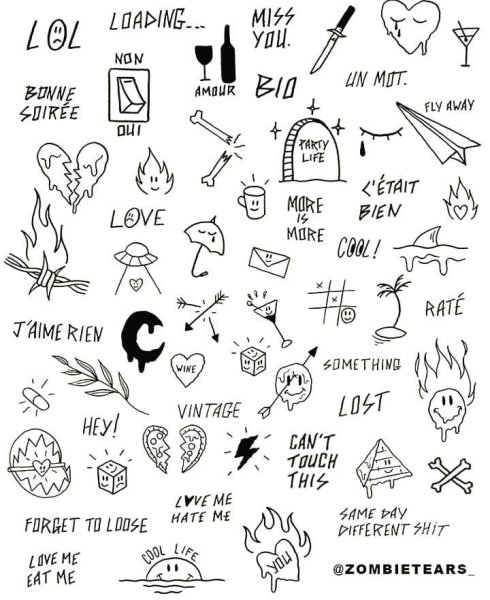 LOL
LOADING...
MISS
YOU.
NON
OUI
AMOUR
BIO
UN MOT.
BONNE
SOIRÉE
FLY AWAY
PARTY
LIFE
C'ÉTAIT
BIEN
LOVE
MORE
IS
MORE
COOL!
RATÉ
J'AIME RIEN
WINE
SOMETHING
LOST
VINTAGE
HEY!
CAN'T
TOUCH
THIS
LOVE ME
HATE ME
FORGET TO LOOSE
SAME DAY
DIFFERENT SHIT
LOVE ME
EAT ME
COOL LIFE
YOU
@ZOMBIETEARS_